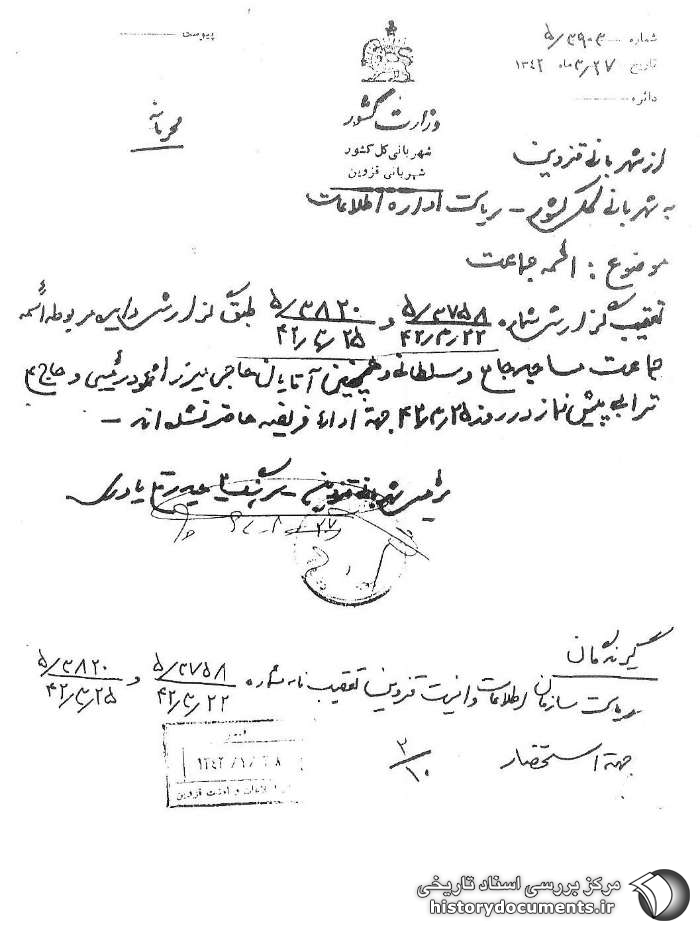 شماره ۵/۳۹۰۳
پیوست
تاریخ ۳/۲۷ ماه ۱۳۴۲
دائره
وزارت کشور
شهربانی کل کشور
شهربانی قزوین
محرمانه
از شهربانی قزوین
به شهربانی کل کشور – ریاست اداره اطلاعات
موضوع : ائمه جماعت
تعقیب گزارش شماره ۵/۳۷۵۸ ۴۲/۳/۲۲ و ۵/۳۸۲۰ ۴۲/۳/۲۵ طبق گزارش دایره مربوطه ائمه
جماعت مساجد جامع و سلطانی و همچنین آقایان حاجی میرزا محمود رئیسی و حاج
ترابی پیش نماز در روز ۴۲/۳/۲۵ جهة اداء فریضه حاضر نشده اند –
رئیس شهربانی قزوین – سرهنگ
گیرندگان
ریاست سازمان اطلاعات و امنیت قزوین تعقیب نامه شماره ۵/۳۷۵۸ ۴۲/۳/۲۲ و ۵/۳۸۲۰ ۴۲/۳/۲۵
جهة استحضار
۲/۱۰
اطلاعات و امنیت قزوین
مرکز بررسی اسناد تاریخی
historydocuments.ir